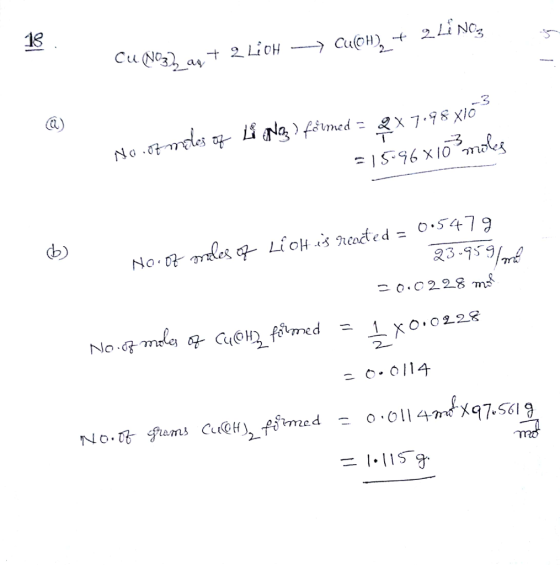 18.
Cu(NO3)2 aq + 2 LiOH ⟶ Cu(OH)2 + 2 LiNO3
(a)
No. of moles of Li(NO3) formed = 2/1 × 7.98 × 10^-3
= 15.96 × 10^-3 moles
(b)
No. of moles of LiOH is reacted = 0.547 g / 23.95 g/mol
= 0.0228 mol
No. of moles of Cu(OH)2 formed = 1/2 × 0.0228
= 0.0114
No. of grams Cu(OH)2 formed = 0.0114 mol × 97.561 g/mol
= 1.115 g.